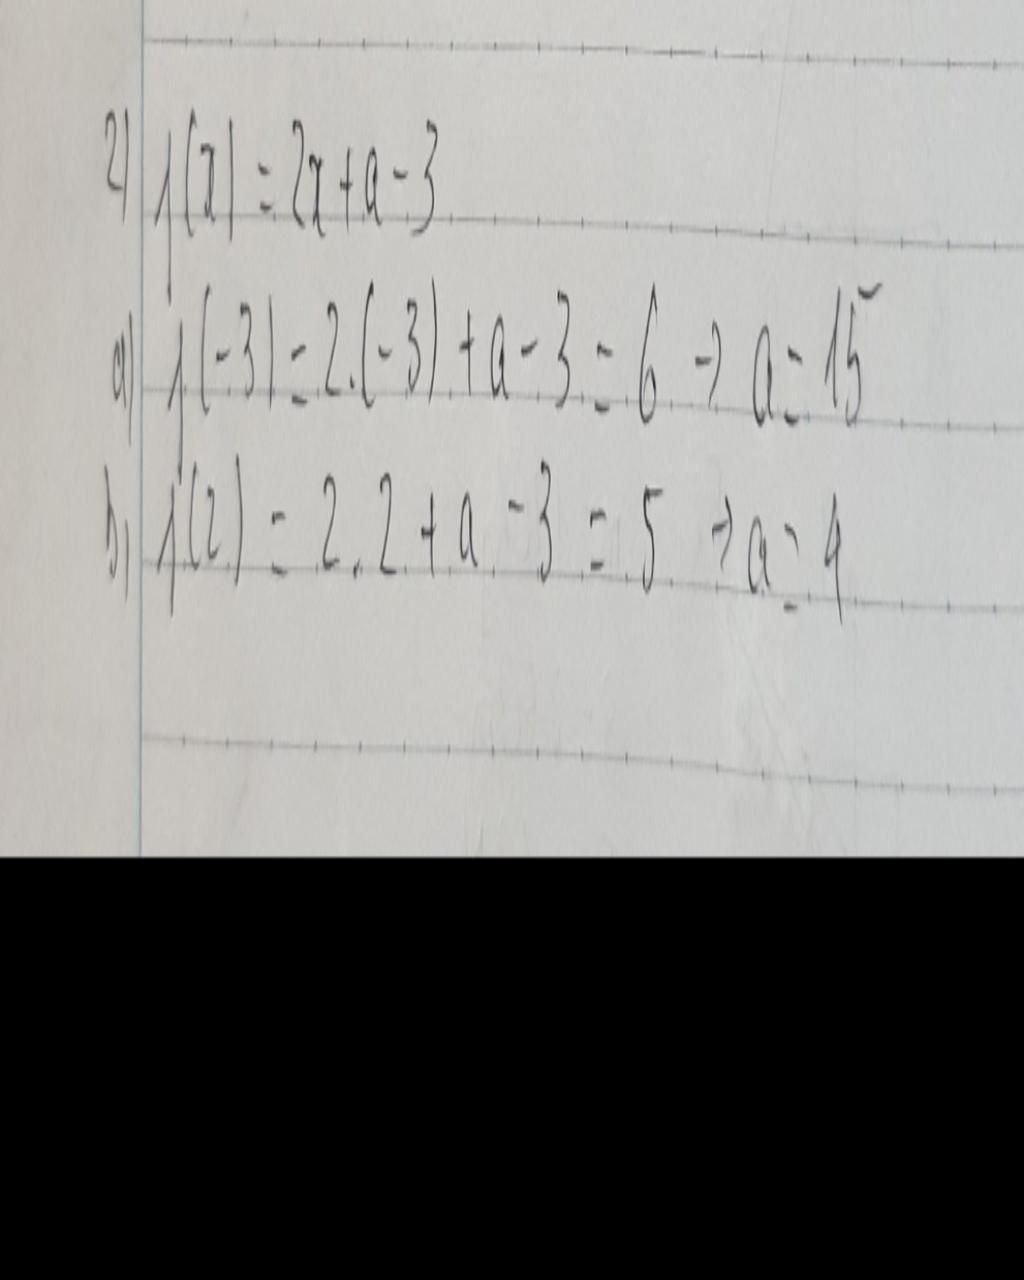 2) f(x) = 2x + a - 3
a) f(-3) = 2.(-3) + a - 3 = 6 → a = 15
b) f(2) = 2.2 + a - 3 = 5 → a = 4